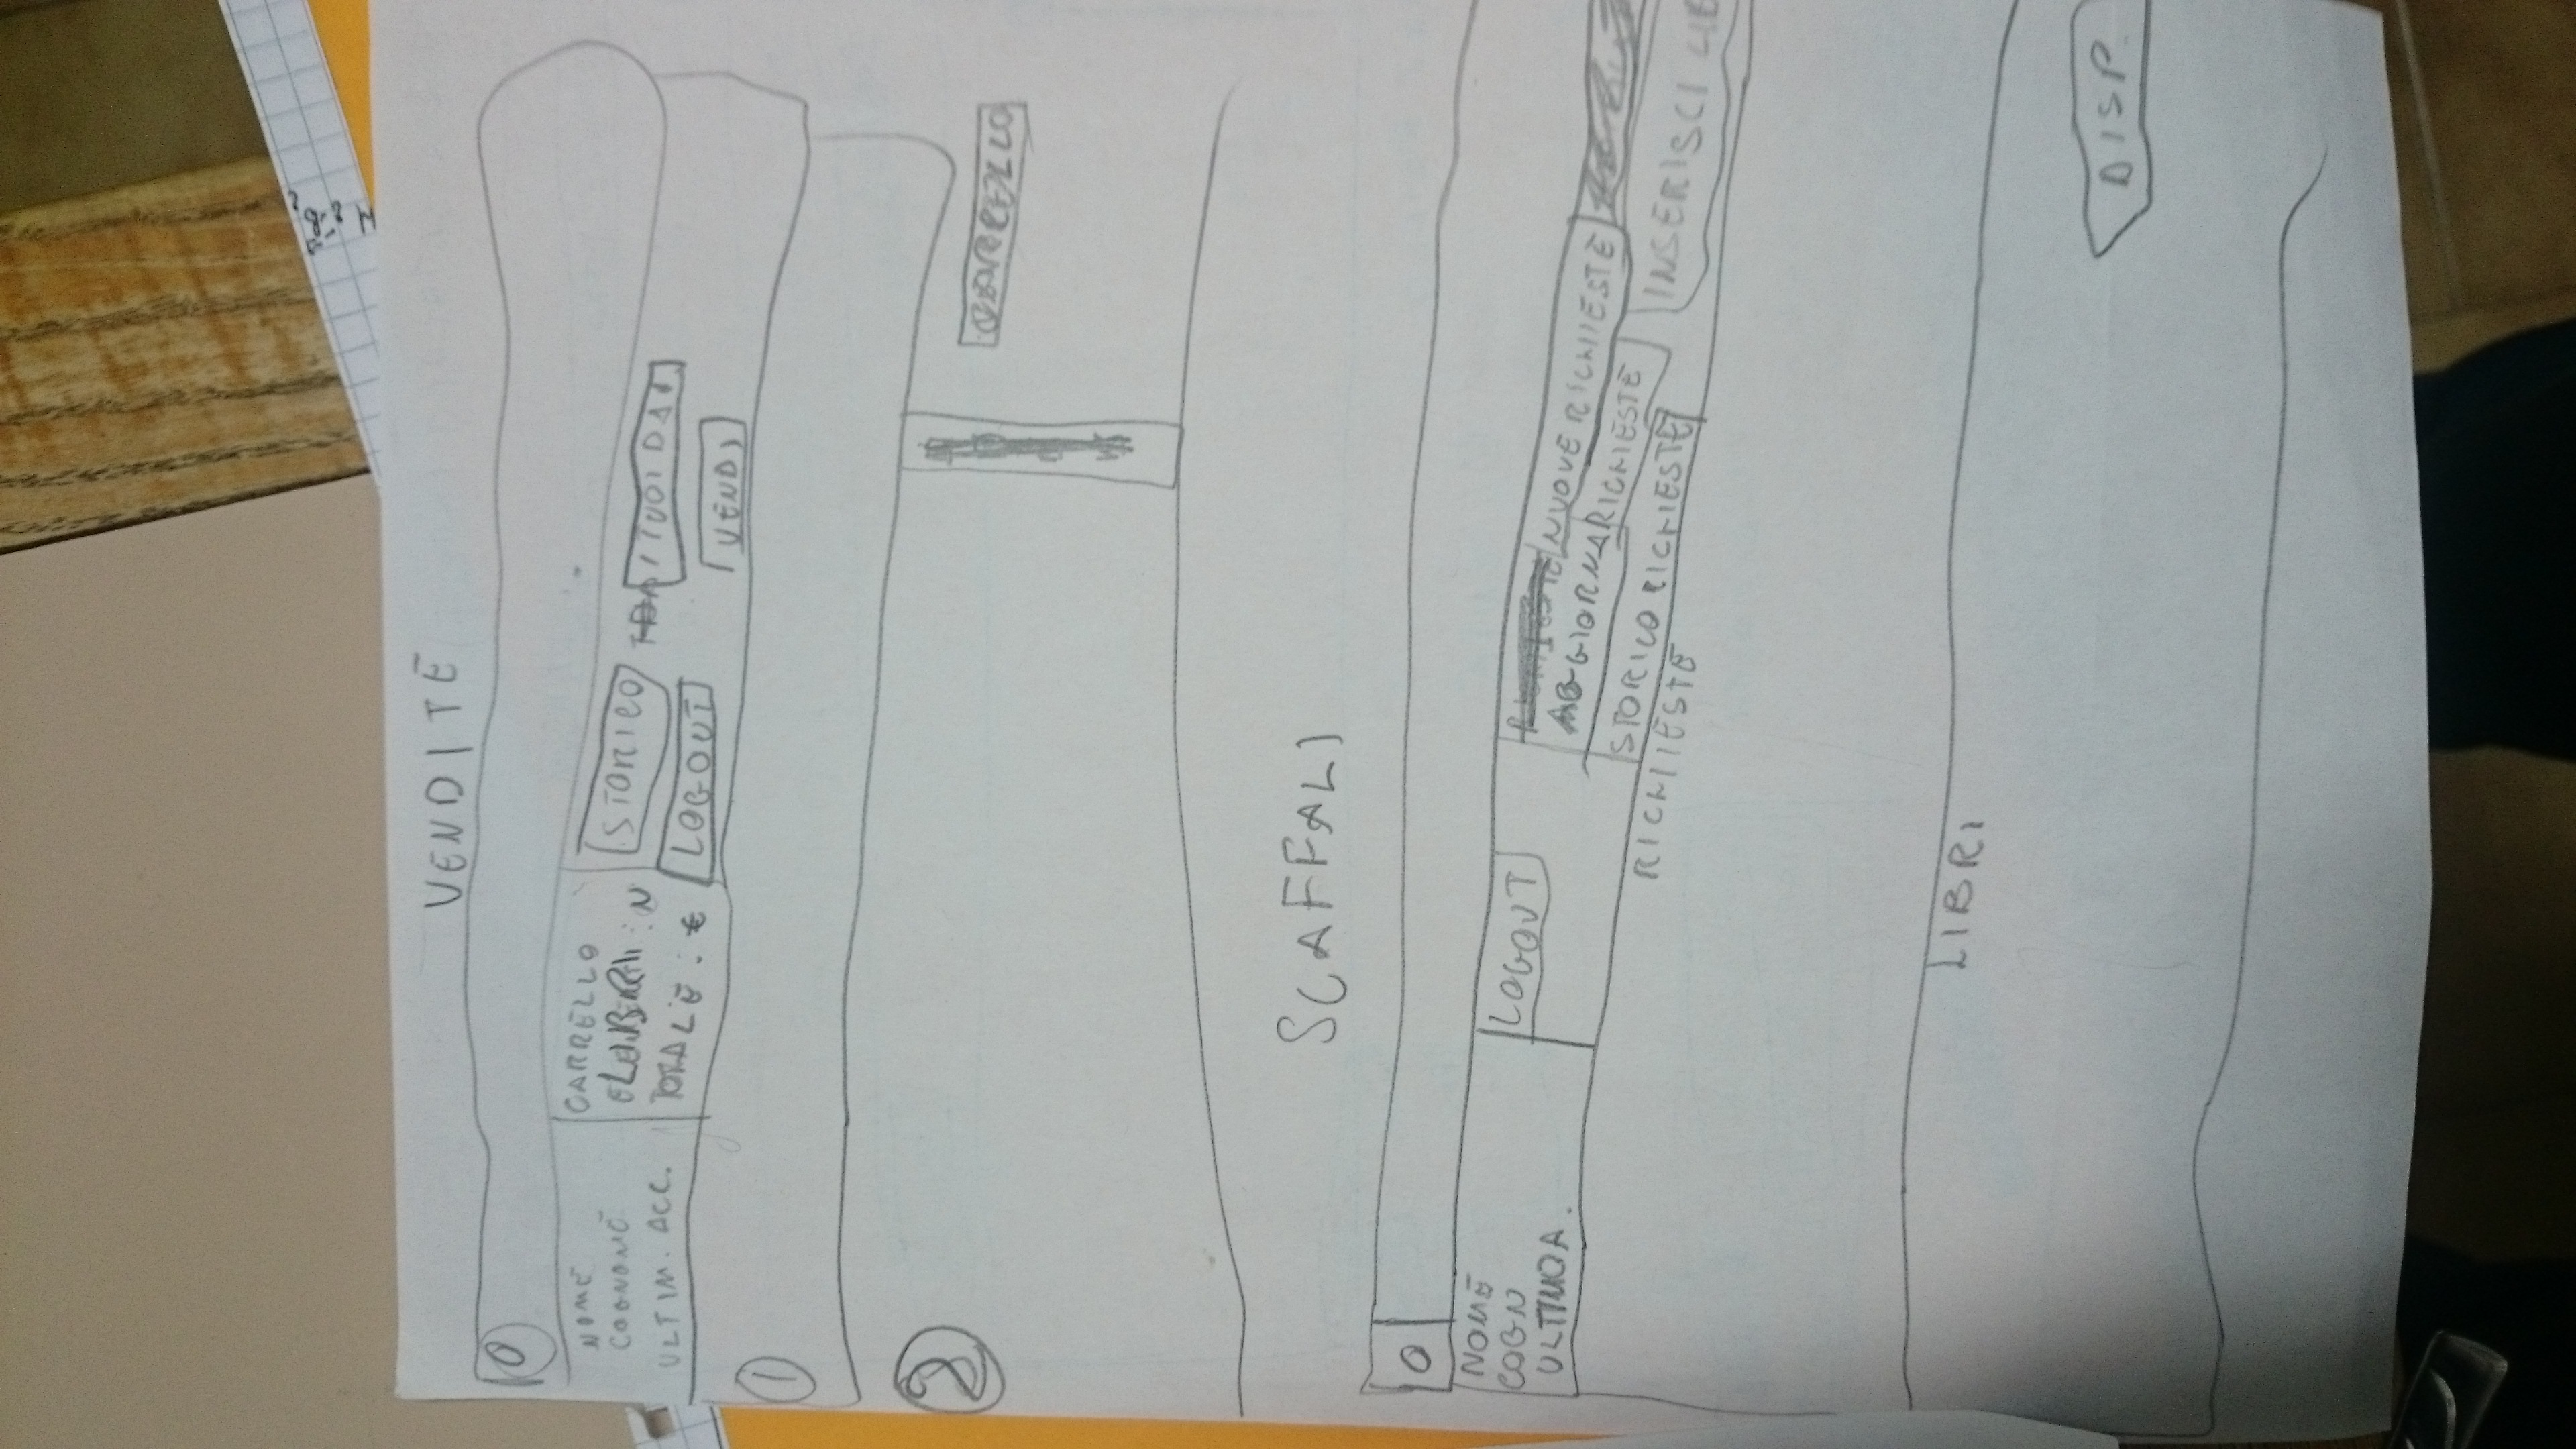 VENDITE
0
NOME
COGNOME
ULTIM. ACC.
CARRELLO
: N
TOTALE : €
STORICO
LOGOUT
I TUOI DATI
VENDI
1
2
CARRELLO
SCAFFALI
0
NOME
COGN
ULTIMO A.
LOGOUT
NUOVE RICHIESTE
AGGIORNA RICHIESTE
STORICO RICHIESTE
INSERISCI
RICHIESTE
LIBRI
DISP.